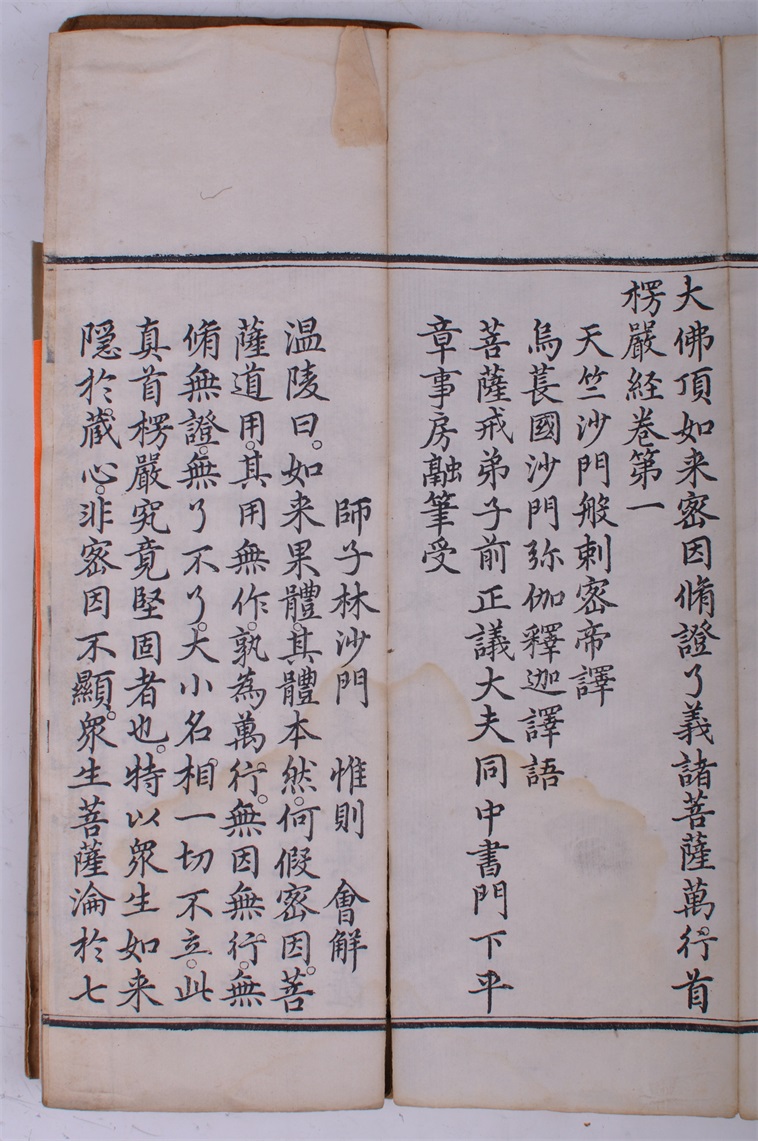 大佛頂如来密因脩證了義諸菩薩萬行首
楞嚴經卷第一
天竺沙門般剌密帝譯
烏萇國沙門弥伽釋迦譯語
菩薩戒弟子前正議大夫同中書門下平
章事房融筆受
師子林沙門　惟則　會解
温陵曰。如来果體。其體本然。何假密因。菩
薩道用。其用無作。孰為萬行。無因無行。無
脩無證。無了不了。大小名相。一切不立。此
真首楞嚴究竟堅固者也。特以衆生如来
隱於藏心。非密因不顯。衆生菩薩淪於七